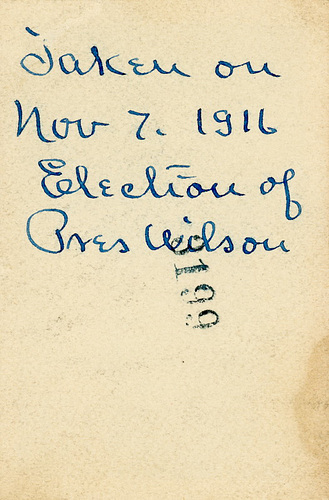 Taken on
Nov 7. 1916
Election of
Pres Wilson
3199